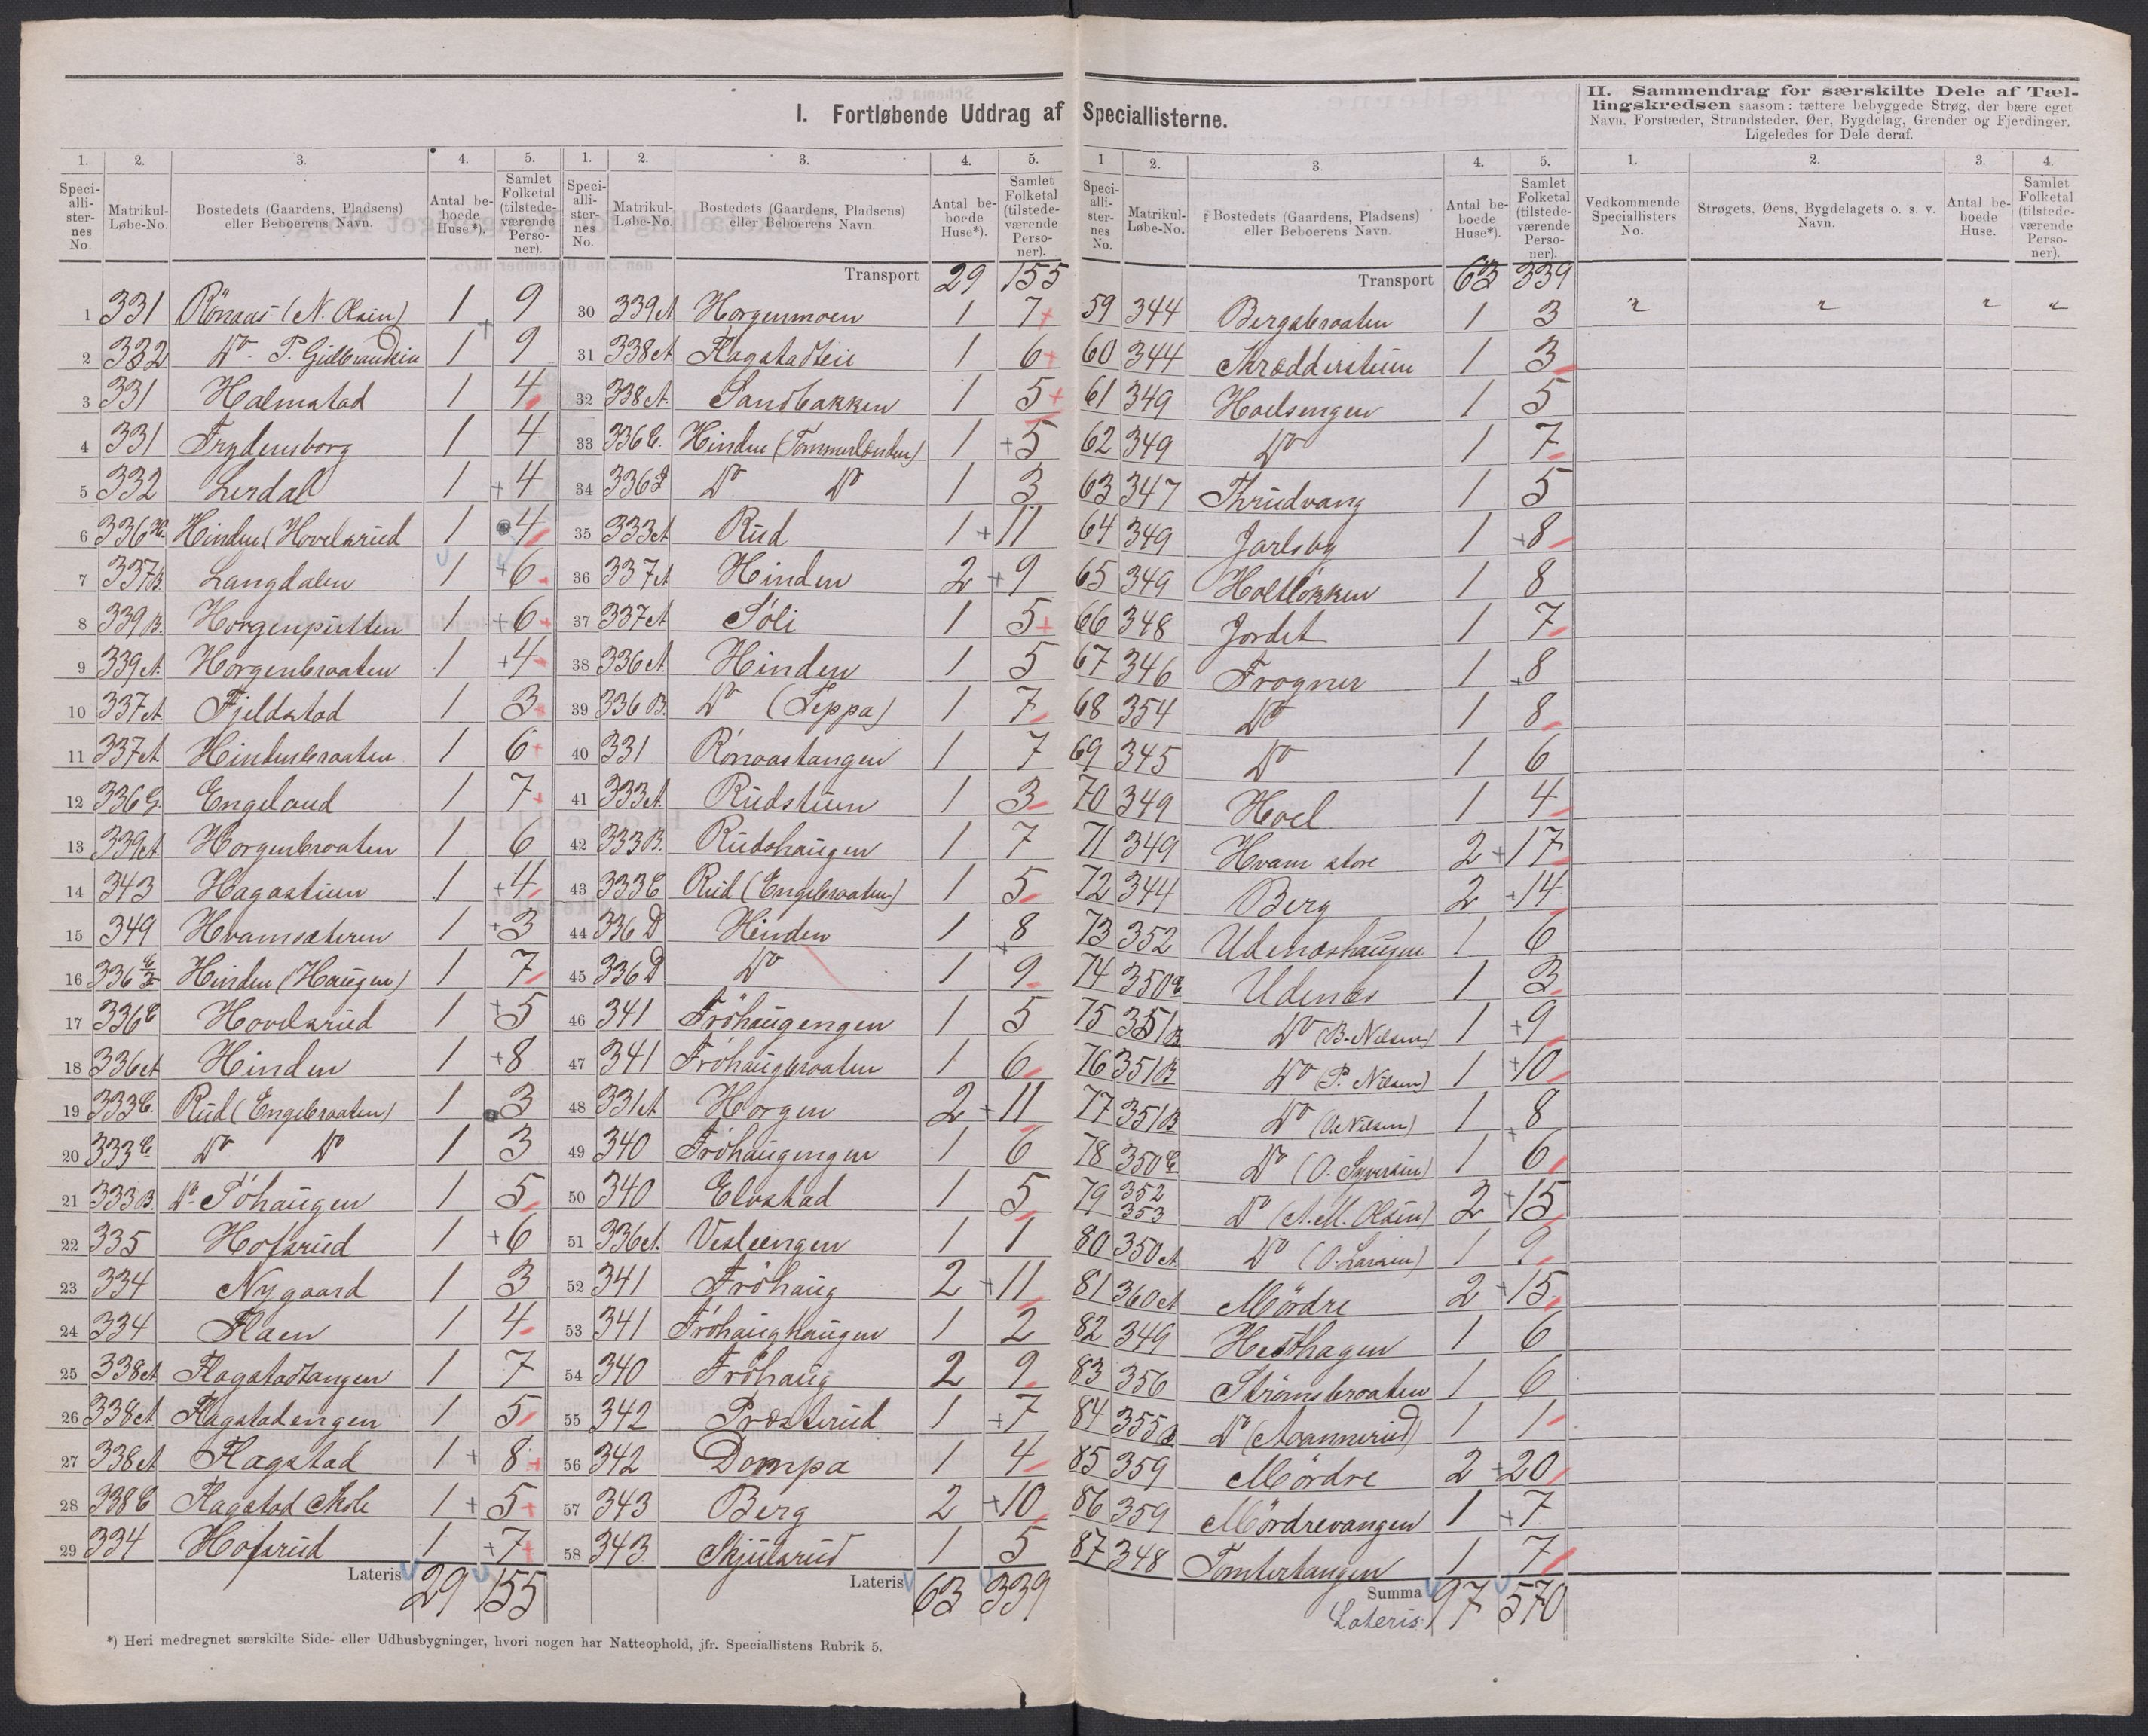 I. Fortløbende Uddrag af Speciallisterne.
II. Sammendrag for særskilte Dele af Tæl-
lingskredsen saasom: tættere bebyggede Strøg, der bære eget
Navn, Forstæder, Strandsteder, Øer, Bygdelag, Grender og Fjerdinger.
Ligeledes for Dele deraf.
1. 2. 3. 4. 5.
Speci-alli-ster-nes No. Matrikul-Løbe-No. Bostedets (Gaardens, Pladsens) eller Beboerens Navn. Antal be-boede Huse*). Samlet Folketal (tilstede-værende Perso-ner).
1 331 Rönaas (N. Olsen) 1 9
2 332 Do P. Gulbrandsen 1 9
3 331 Halmstad 1 4
4 331 Frydensborg 1 4
5 332 Lerdal 1 + 4
6 336 H. Hinden (Hovelsrud 1 4
7 337 B. Langdalen 1 + 6
8 339 B. Horgenputten 1 + 6
9 339 A. Horgenbraaten 1 + 4
10 337 A Fjeldstad 1 3
11 337 A Hindenbraaten 1 6
12 336 G. Engelaud 1 7
13 339 A Horgenbraaten 1 6
14 343 Hagastuen 1 + 4
15 349 Hvamsæteren 1 + 3
16 336 Hinden (Haugen) 1 7
17 336 E Hovelsrud 1 + 5
18 336 A Hinden 1 + 8
19 333 C. Rud (Engebraaten) 1 3
20 333 C Do Do 1 3
21 333 B. Do Söhaugen 1 5
22 335 Hofsrud 1 + 6
23 334 Nygaard 1 3
24 334 Flaen 1 4
25 338 A Flagstadtangen 1 7
26 338 A. Flagstadengen 1 5
27 338 A Flagstad 1 + 8
28 338 C Flagstad Skole 1 + 5
29 334 Hofsrud 1 + 7
Lateris 29 155
1. 2. 3. 4. 5.
Speci-alli-ster-nes No. Matrikul-Løbe-No. Bostedets (Gaardens, Pladsens) eller Beboerens Navn. Antal be-boede Huse*). Samlet Folketal (tilstede-værende Perso-ner).
Transport 29 155
30 339 A Horgenmoen 1 7
31 338 A Flagstadteie 1 6
32 338 A. Sandbakken 1 5
33 336 C. Hinden (Tommerlænden) 1 + 5
34 336 Do Do 1 3
35 333 A Rud 1 + 11
36 337 A Hinden 2 + 9
37 337 A Söli 1 5
38 336 A. Hinden 1 5
39 336 B. Do (Seppa) 1 7
40 331 Rönaastangen 1 7
41 333 A. Rudstuen 1 3
42 333 B. Rudshaugen 1 7
43 333 C Rud (Engebraaten) 1 5
44 336 D Hinden 1 8
45 336 D Do 1 9
46 341 Fröhaugengen 1 5
47 341 Fröhaugbraaten 1 6
48 331 A Horgen 2 + 11
49 340 Fröhaugengen 1 6
50 340 Elvestad 1 5
51 336 A. Vesleengen 1 1
52 341 Fröhaug 2 + 11
53 341 Fröhaughaugen 1 2
54 340 Fröhaug 2 9
55 342 Præsterud 1 + 7
56 342 Dompa 1 4
57 343 Berg 2 + 10
58 343 Skjulsrud 1 5
Lateris 63 339
1 2. 3. 4. 5.
Speci-alli-ster-nes No. Matrikul-Løbe-No. Bostedets (Gaardens, Pladsens) eller Beboerens Navn. Antal be-boede Huse*). Samlet Folketal (tilstede-værende Perso-ner).
Transport 63 339
59 344 Bergsbraaten 1 3
60 344 Skrædderstuen 1 3
61 349 Hoelsengen 1 5
62 349 Do 1 7
63 347 Thrudvang 1 5
64 349 Jarlsby 1 + 8
65 349 Holtlökken 1 8
66 348 Jordet 1 7
67 346 Frogner 1 8
68 354 Do 1 8
69 345 Do 1 6
70 349 Hoel 1 4
71 349 Hvam store 2 + 17
72 344 Berg 2 + 14
73 352 Udenæshaugen 1 6
74 350 Udenæs 1 3
75 351 B Do (B. Nilsen) 1 + 9
76 351 B Do (P. Nilsen) 1 + 10
77 351 B Do (O. Nilsen) 1 8
78 350 C Do (O. Syversen) 1 6
79 352 353 Do (A. M. Olsen) 2 + 15
80 350 A Do (O. Larsen) 1
81 360 A Mördre 2 + 15
82 349 Hesthagen 1 6
83 356 Strömsbraaten 1 6
84 355 Do (Aamnerud) 1 1
85 359 Mördre 2 + 20
86 359 Mördrevangen 1 + 7
87 348 Tomtertangen 1 7
Summa 97 570
Lateris:
1. 2. 3. 4.
Vedkommende Speciallisters No. Strøgets, Øens, Bygdelagets o. s. v. Navn. Antal be-boede Huse. Samlet Folketal (tilstede-værende Perso-ner).
" " " "
*) Heri medregnet særskilte Side- eller Udhusbygninger, hvori nogen har Natteophold, jfr. Speciallistens Rubrik 5.